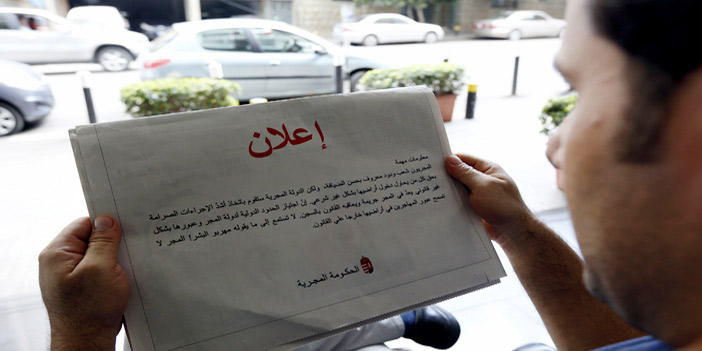 إعلان
معلومات مهمة
المجريون شعب ودود معروف بحسن الضيافة، ولكن الدولة المجرية ستقوم باتخاذ أشدّ الإجراءات الصارمة
بحق كل من يحاول دخول أراضيها بشكل غير شرعي. إنّ اجتياز الحدود الدولية لدولة المجر وعبورها بشكل
غير قانوني يعدّ في المجر جريمة ويعاقبه القانون بالسجن. لا تستمع إلى ما يقوله مهربو البشر! المجر لا
تسمح عبور المهاجرين في أراضيها خارجا على القانون.
الحكومة المجرية